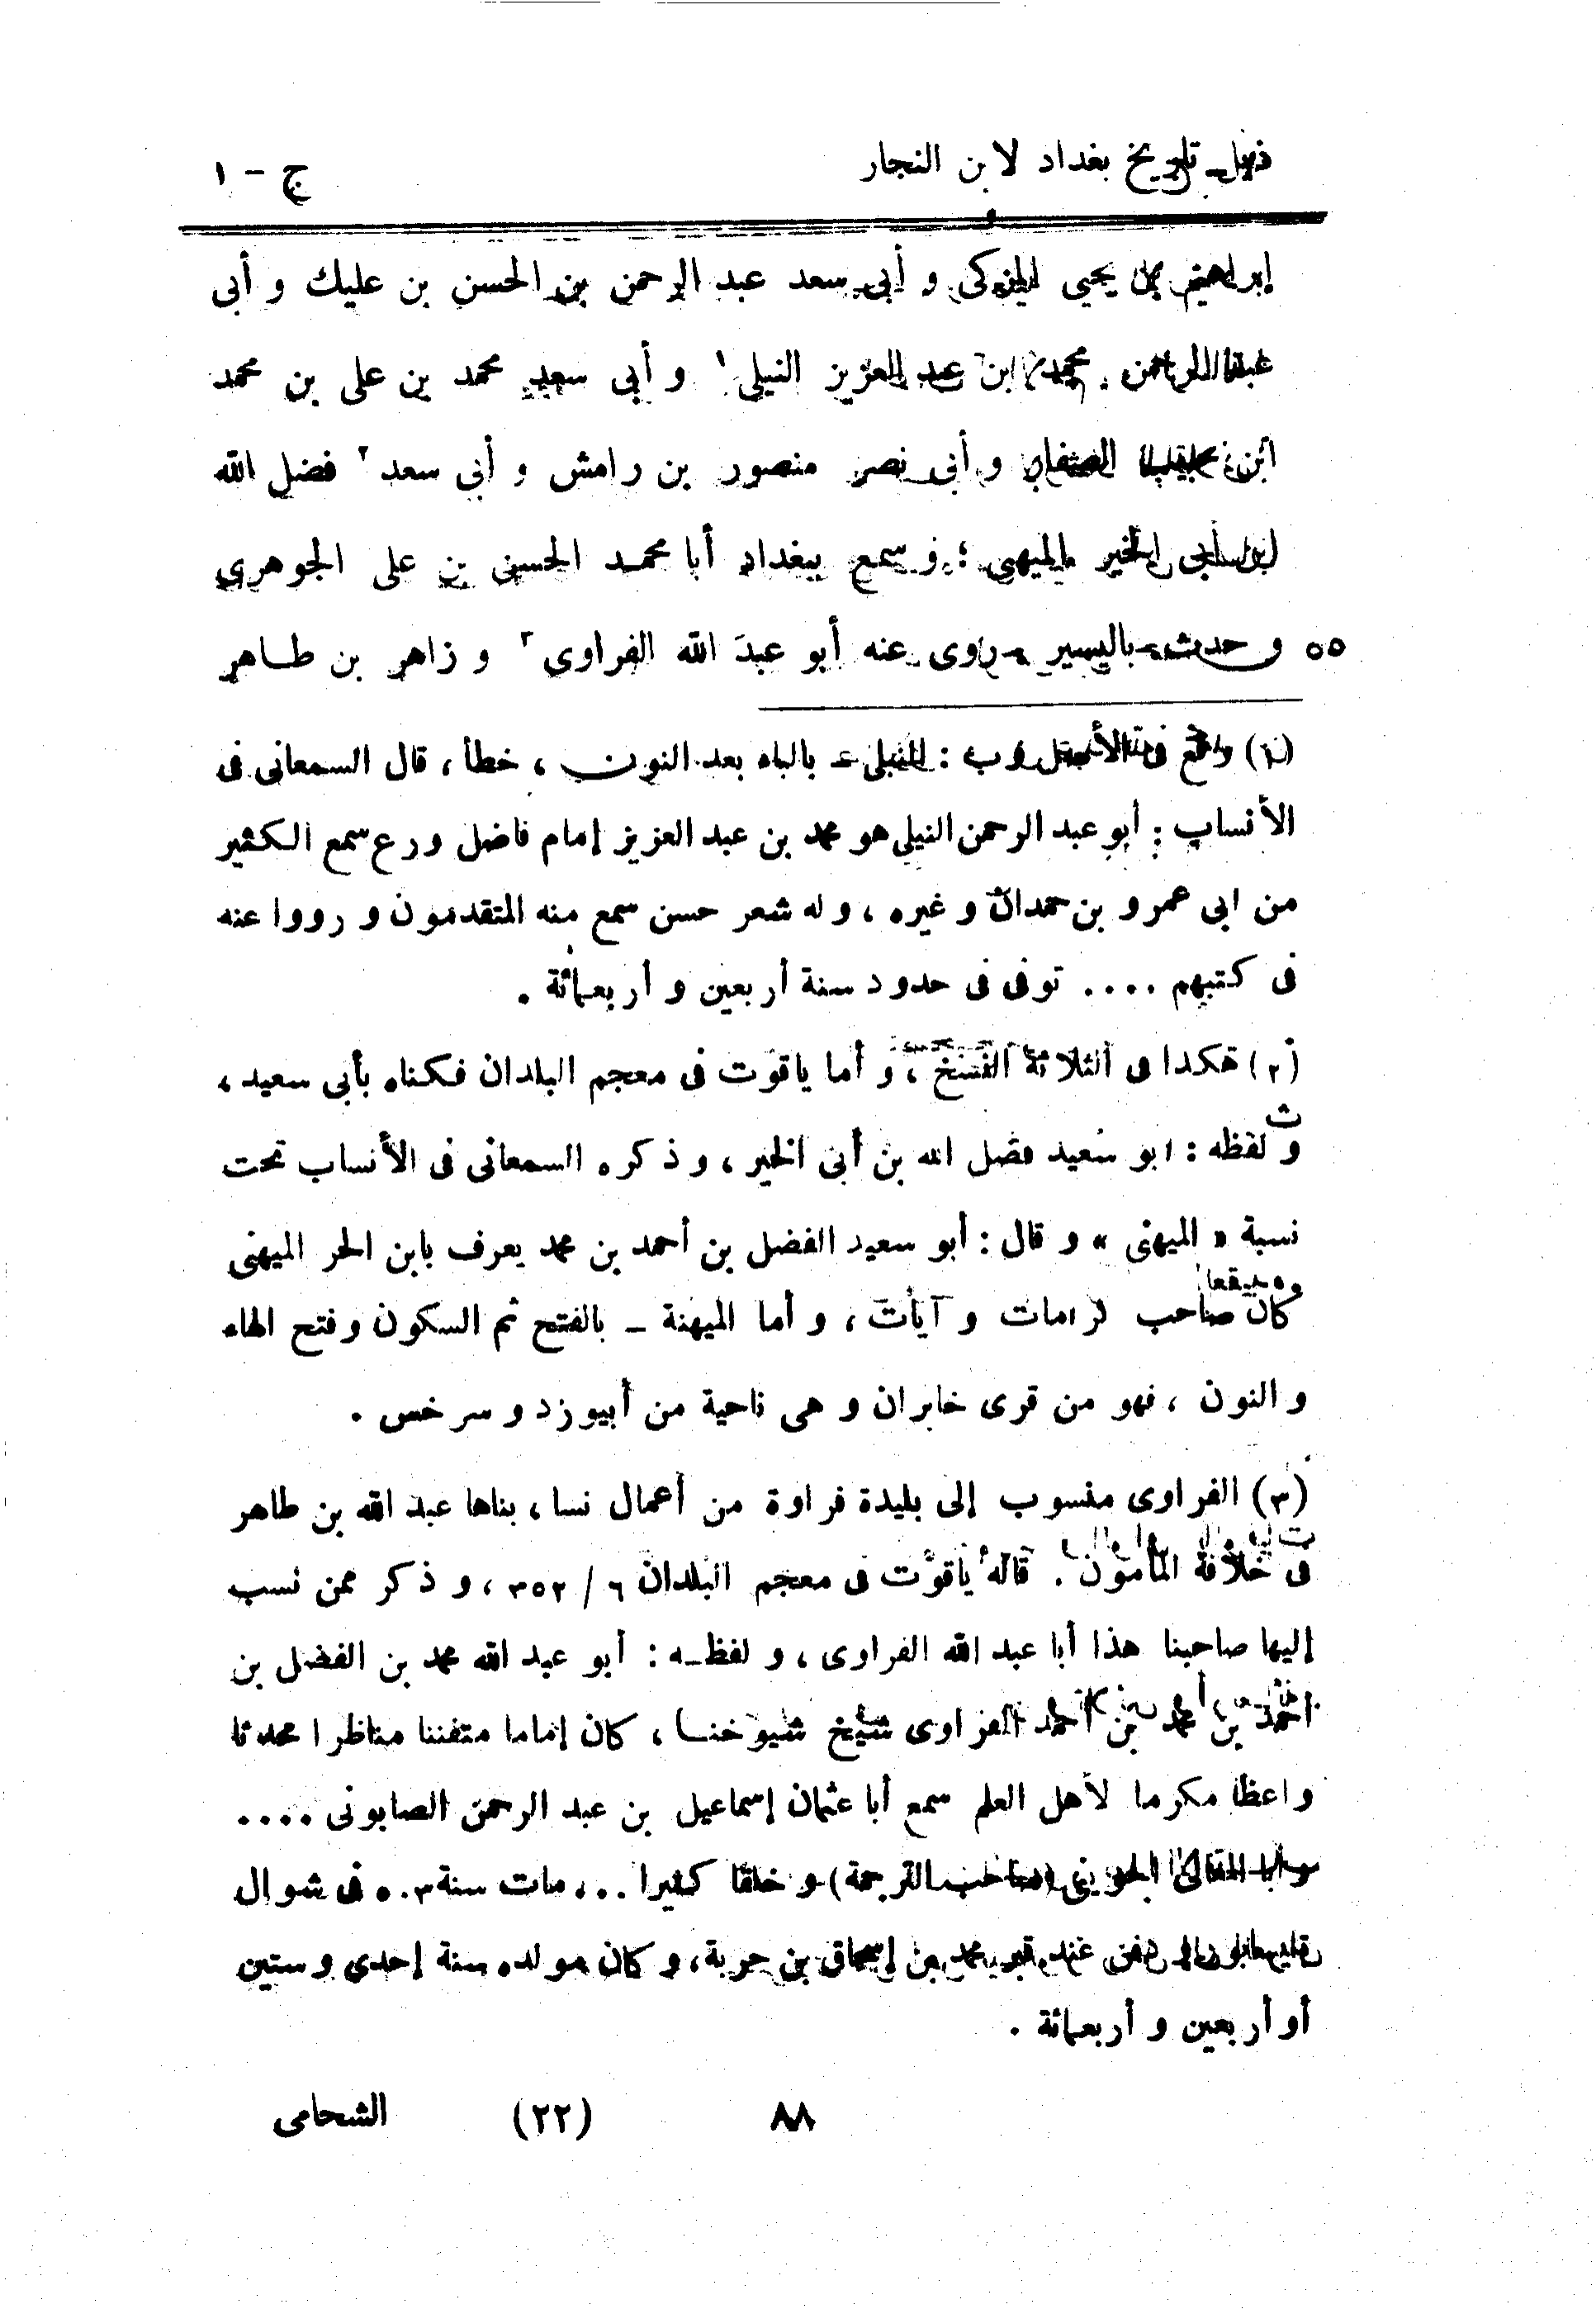 ذيل تاريخ بغداد لابن النجار ج - ١
إبراهيم بن يحيى المزكى و أبى سعد عبد الرحمن بن الحسن بن عليك و أبى
عبد الرحمن محمد ابن عبد العزيز النيلى ١ و أبى سعيد محمد بن على بن محمد
ابن و أبى نصر منصور بن رامش و أبى سعد ٢ فضل الله
ابن أبى الخير الميهنى ؛ و سمع ببغداد أبا محمد الحسن بن على الجوهرى
٥ و حدث باليسير روى عنه أبو عبد الله الفراوى ٣ و زاهر بن طاهر
(١) وقع فى الأصل و ب : النبلى - بالباء بعد النون ، خطأ ، قال السمعانى فى
الأنساب : أبو عبد الرحمن النيلى هو محمد بن عبد العزيز إمام فاضل ورع سمع الكثير
من ابى عمرو بن حمدان و غيره ، و له شعر حسن سمع منه المتقدمون و رووا عنه
فى كتبهم .... توفى فى حدود سنة أربعين و أربعمائة .
(٢) هكذا فى الثلاثة النسخ ، و أما ياقوت فى معجم البلدان فكناه بأبى سعيد ،
و لفظه : ابو سعيد فضل الله بن أبى الخير ، و ذكره السمعانى فى الأنساب تحت
نسبة « الميهنى » و قال : أبو سعيد الفضل بن أحمد بن محمد يعرف بابن الحر الميهنى
كان صاحب كرامات و آيات ، و أما الميهنة - بالفتح ثم السكون و فتح الهاء
و النون ، فهو من قرى خابران و هى ناحية من أبيوزد و سرخس .
(٣) الفراوى منسوب إلى بليدة فراوة من أعمال نسا ، بناها عبد الله بن طاهر
فى خلافة المأمون . قاله ياقوت فى معجم البلدان ٦ / ٣٥٢ ، و ذكر ممن نسب
إليها صاحبنا هذا أبا عبد الله الفراوى ، و لفظه : أبو عبد الله محمد بن الفضل بن
أحمد بن محمد بن أحمد الفزاوى شيخ شيوخنا ، كان إماما متفننا مناظرا محدثا
واعظا مكرما لأهل العلم سمع أبا عثمان إسماعيل بن عبد الرحمن الصابونى ....
الجوينى (صاحب الترجمة) و خلقا كثيرا ... مات سنة ٥٠٣ فى شوال
و دفن عند قبر محمد بن إسحاق بن حربة ، و كان مولده سنة إحدى و ستين
أو أربعين و أربعمائة .
٨٨ (٢٢) الشحامى